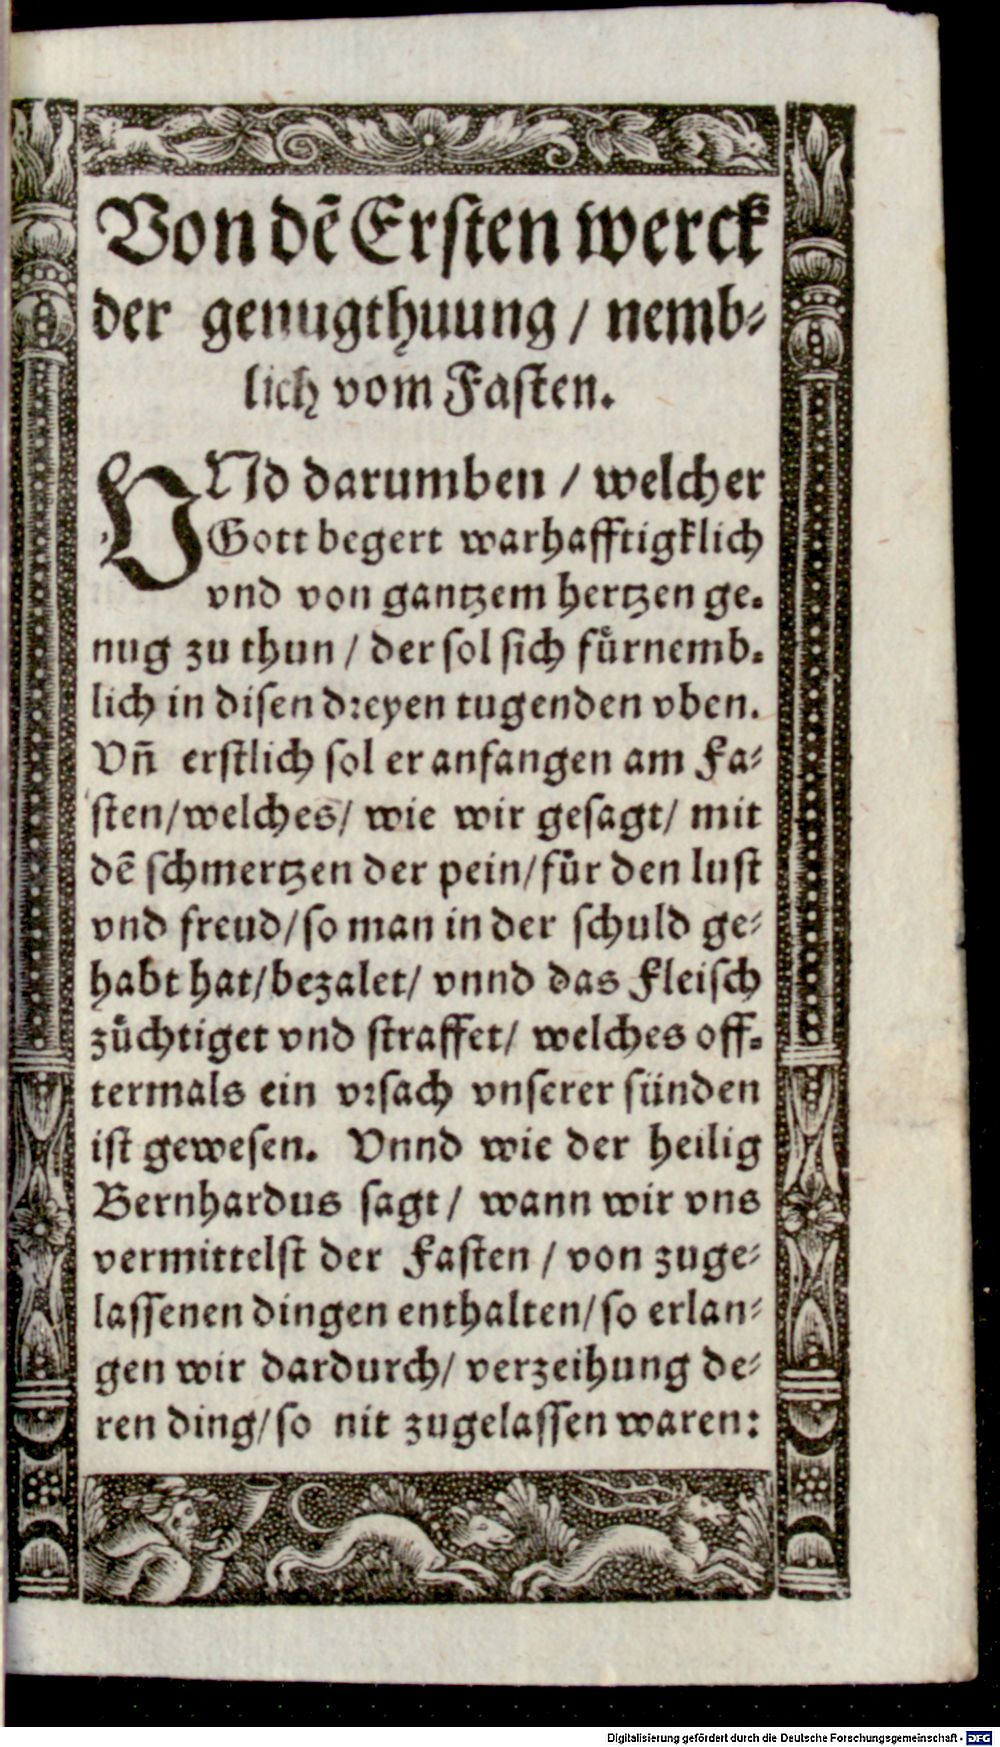 Von dē Ersten werck
der genugthuung / nemb⸗
lich vom Fasten.
VNd darumben / welcher
Gott begert warhafftigklich
vnd von gantzem hertzen ge⸗
nug zu thun / der sol sich fuͤrnemb⸗
lich in disen dreyen tugenden vben.
Vñ erstlich sol er anfangen am Fa⸗
sten/welches/ wie wir gesagt/ mit
dē schmertzen der pein/fuͤr den lust
vnd freud/so man in der schuld ge⸗
habt hat/bezalet/ vnnd das Fleisch
zuͤchtiget vnd straffet/ welches off⸗
termals ein vrsach vnserer sünden
ist gewesen. Vnnd wie der heilig
Bernhardus sagt/ wann wir vns
vermittelst der Fasten / von zuge⸗
lassenen dingen enthalten/so erlan⸗
gen wir dardurch/ verzeihung de⸗
ren ding/so nit zugelassen waren:
Digitalisierung gefördert durch die Deutsche Forschungsgemeinschaft - DFG